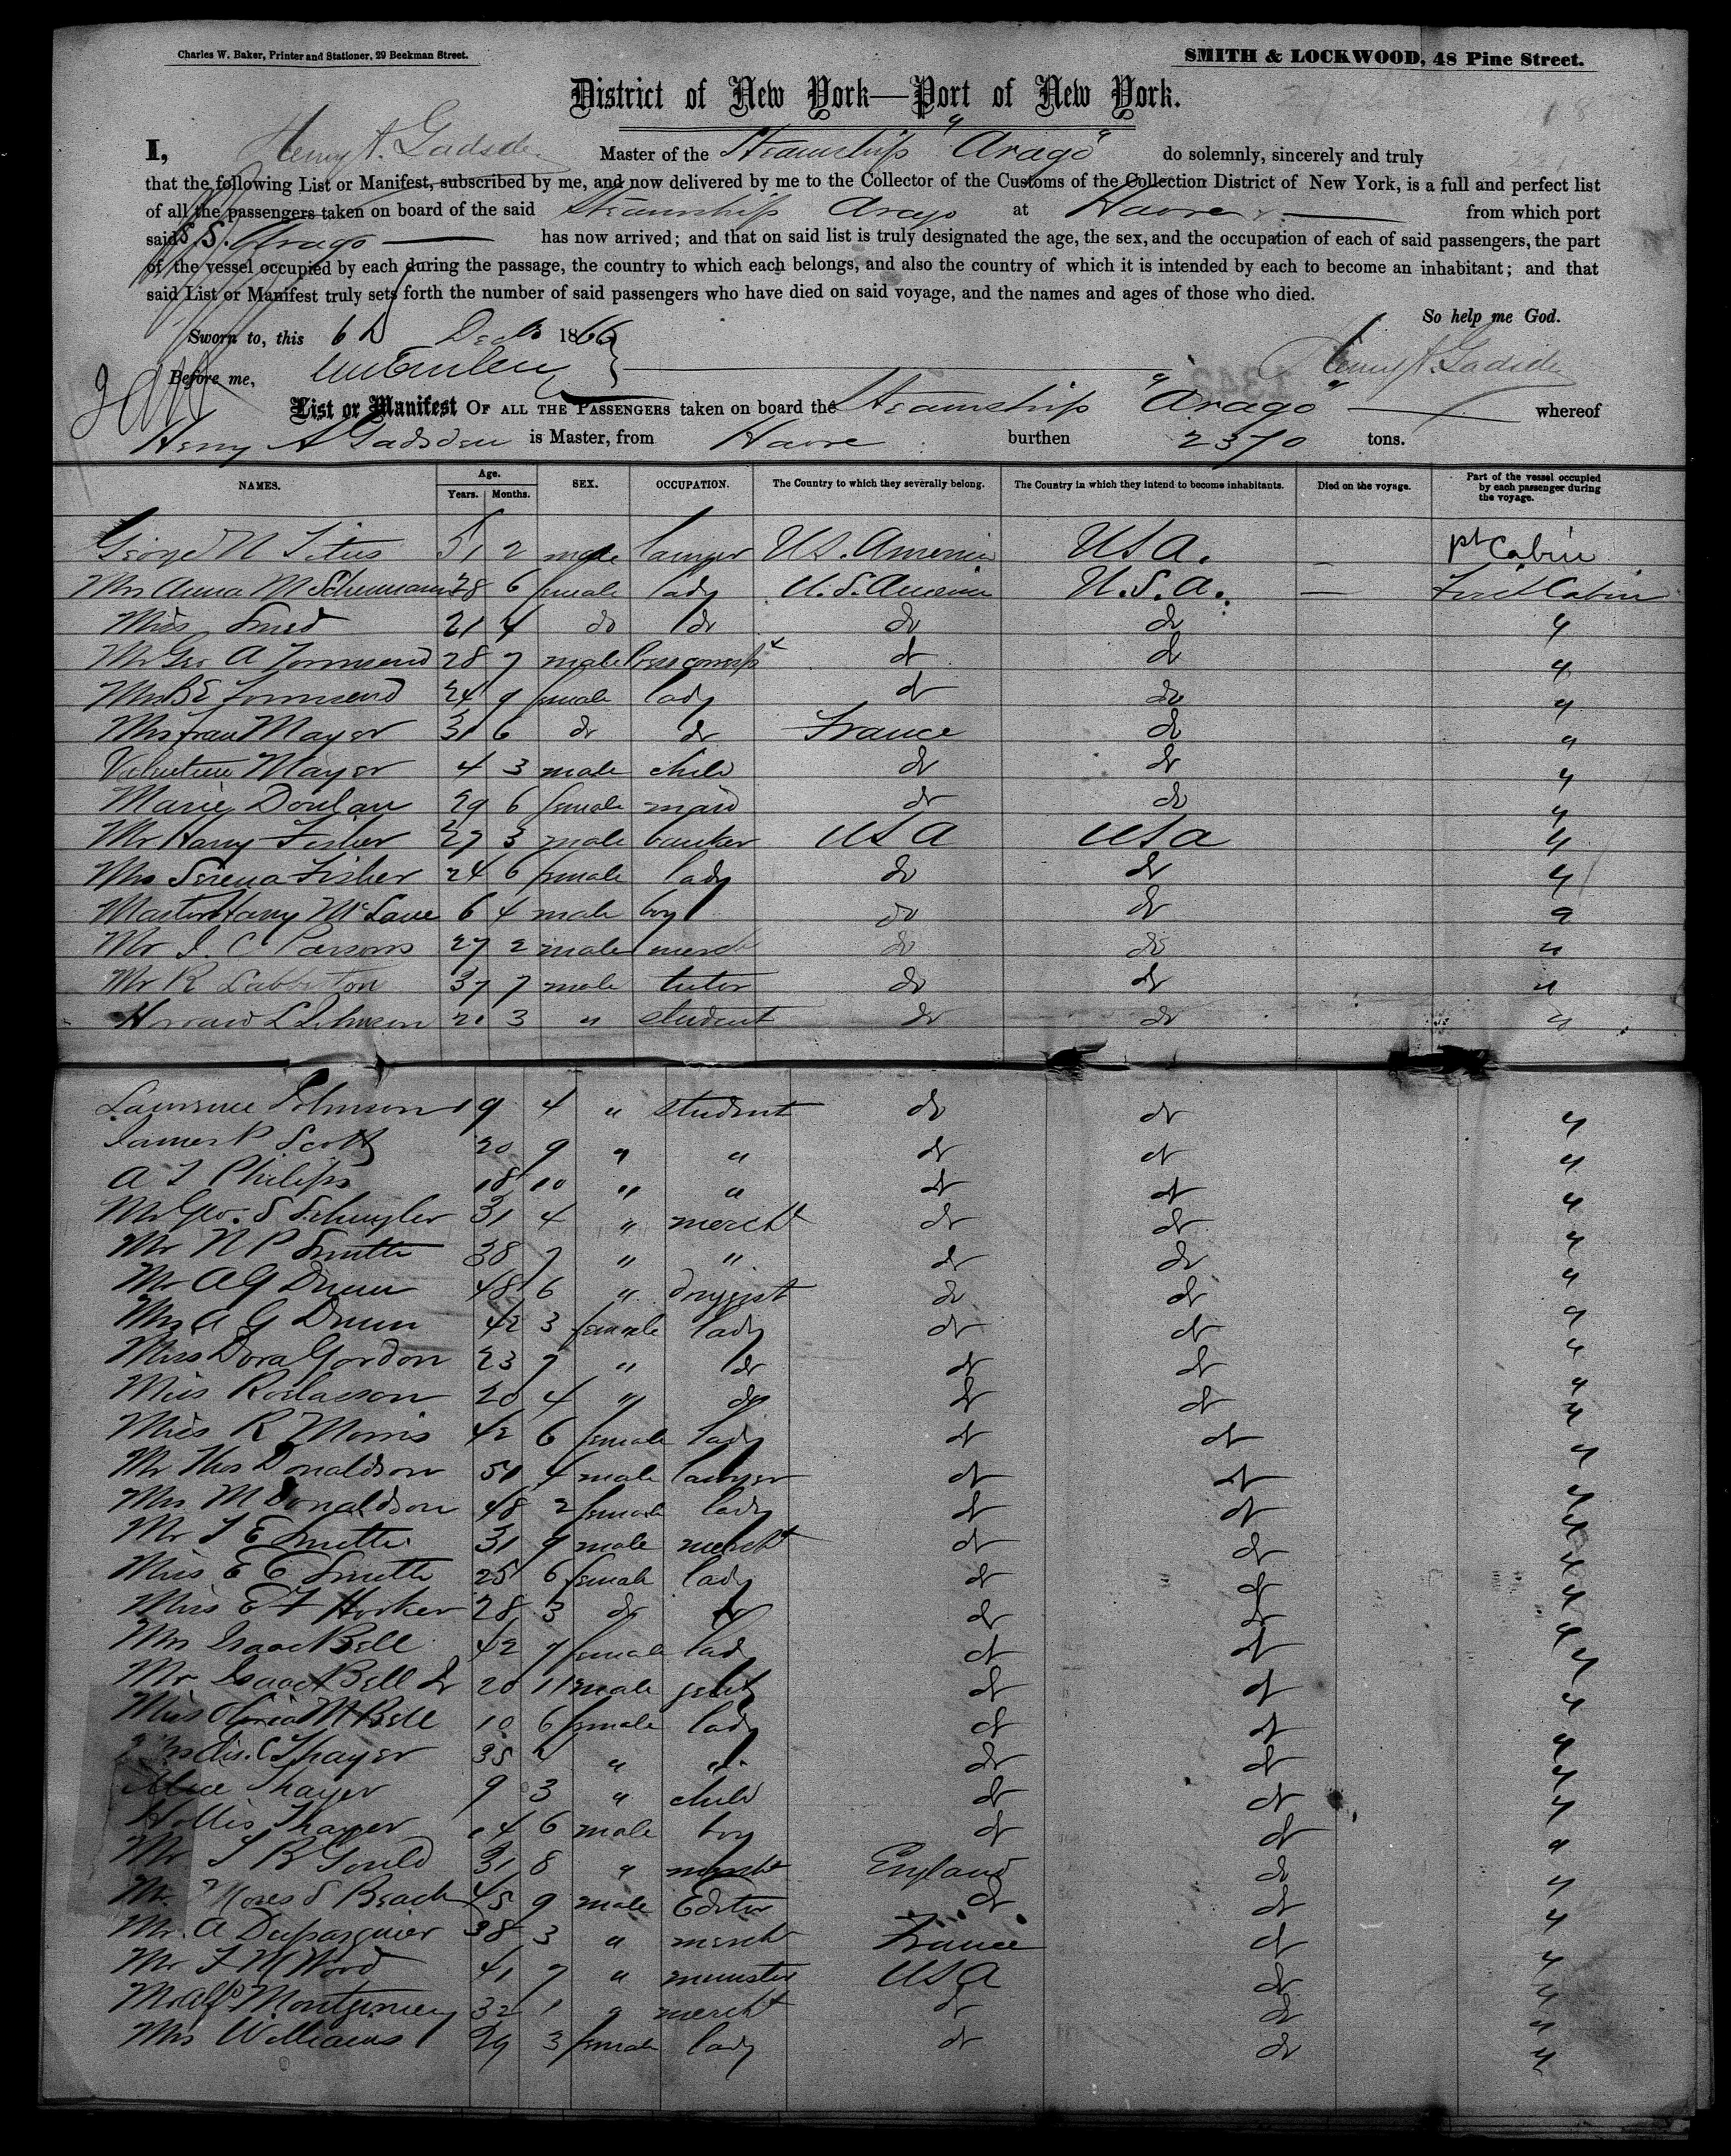 Charles W. Baker, Printer and Stationer, 29 Beekman Street.
SMITH & LOCKWOOD, 48 Pine Street.
District of New York—Port of New York.
I, Henry A. Gadsden Master of the Steamship "Arago" do solemnly, sincerely and truly
that the following List or Manifest, subscribed by me, and now delivered by me to the Collector of the Customs of the Collection District of New York, is a full and perfect list
of all the passengers taken on board of the said Steamship Arago at Havre from which port
said S.S. Arago has now arrived; and that on said list is truly designated the age, the sex, and the occupation of each of said passengers, the part
of the vessel occupied by each during the passage, the country to which each belongs, and also the country of which it is intended by each to become an inhabitant; and that
said List or Manifest truly sets forth the number of said passengers who have died on said voyage, and the names and ages of those who died.
So help me God.
Sworn to, this 6th Decb 1866
Henry A. Gadsden
Before me,
List or Manifest OF ALL THE PASSENGERS taken on board the Steamship "Arago" whereof
Henry A Gadsden is Master, from Havre burthen 2370 tons.
NAMES. Age. Years. Months. SEX. OCCUPATION. The Country to which they severally belong. The Country in which they intend to become inhabitants. Died on the voyage. Part of the vessel occupied by each passenger during the voyage.
George N Titus 51 2 male lawyer US. America USA. Cabin
Mrs Anna M Schumann 28 6 female lady U.S. America U.S.A. — First Cabin
Miss 21 4 do do do do "
Mr Geo A Townsend 28 7 male do do "
Mrs B E Townsend 24 9 female lady do do "
Mrs Mayer 31 6 do do France do "
Valentine Mayer 4 3 male child do do "
Marie Doulan 29 6 female maid do do "
Mr Harry Fisher 27 3 male banker USA USA "
Mrs Serena Fisher 24 6 female lady do do "
Master Harry McLane 6 4 male boy do do "
Mr J. C Parsons 27 2 male mercht do do "
Mr R Labberton 37 7 male tutor do do "
Howard L Johnson 21 3 " student do do "
Lawrence Johnson 19 4 " student do do "
James P Scott 20 9 " " do do "
A L Philips 18 10 " " do do "
Mr Geo. S Schuyler 31 4 " mercht do do "
Mr N P Smith 38 7 " " do do "
Mr A G Dunn 48 6 " druggist do do "
Mrs A G Dunn 42 3 female lady do do "
Miss Dora Gordon 23 7 " do do do "
Miss 20 4 " do do do "
Miss R Morris 42 6 female lady do do "
Mr Thos Donaldson 51 4 male lawyer do do "
Mrs M Donaldson 48 2 female lady do do "
Mr T E Smith 31 9 male mercht do do "
Miss E C Smith 25 6 female lady do do "
Miss E F Hooker 28 3 do do do do "
Mrs Isaac Bell 42 7 female lady do do "
Mr Isaac Bell Jr 20 11 male gent do do "
Miss Olivia M Bell 10 6 female lady do do "
Thayer 35 2 " " do do "
Alice Thayer 9 3 " child do do "
Hollis Thayer 4 6 male boy do do "
Mr J B Gould 31 8 " mercht England do "
Mr. Moses S Beach 45 9 male Editor do do "
Mr. A Dupasquier 38 3 " mercht France do "
Mr F M Word 41 7 " minister USA do "
Mr Alf Montgomery 32 1 " mercht do do "
Mrs Williams 29 3 female lady do do "